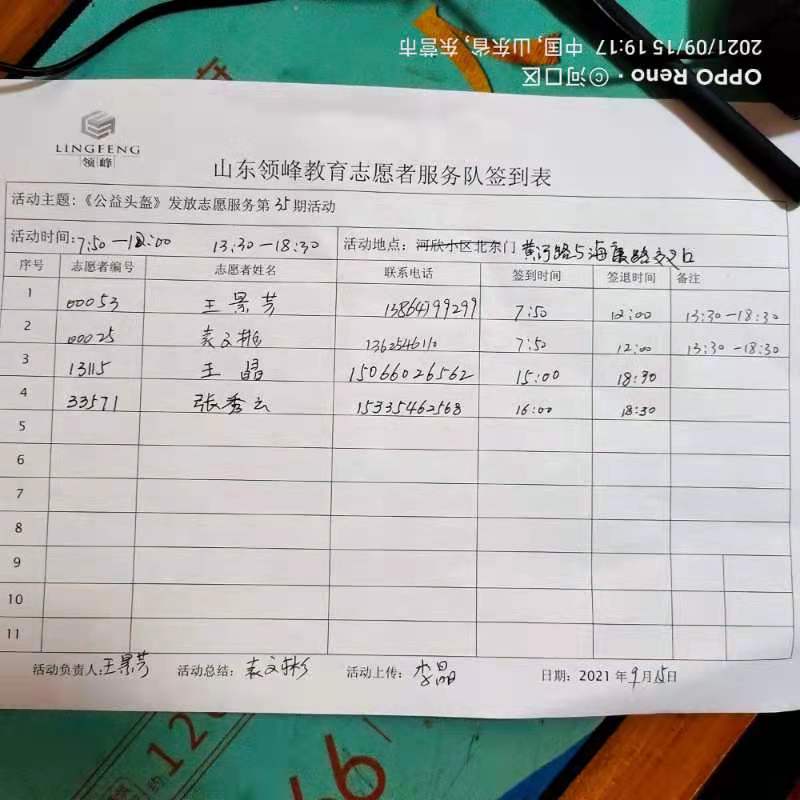 OPPO Reno · ©河口区
2021/09/15 19:17 中国, 山东省, 东营市
LINGFENG
领峰
山东领峰教育志愿者服务队签到表
活动主题:《公益头盔》发放志愿服务第35期活动
活动时间:7:50—12:00 13:30—18:30 活动地点:河欣小区北东门黄河路与海康路交叉口
序号 志愿者编号 志愿者姓名 联系电话 签到时间 签退时间 备注
1 00053 王景芳 13864799299 7:50 12:00 13:30—18:30
2 00025 袁文彬 1362546110 7:50 12:00 13:30—18:30
3 13115 王晶 15066026562 15:00 18:30
4 33571 张秀云 15335462568 16:00 18:30
5
6
7
8
9
10
11
活动负责人:王景芳 活动总结:袁文彬 活动上传:李晶 日期:2021年9月15日